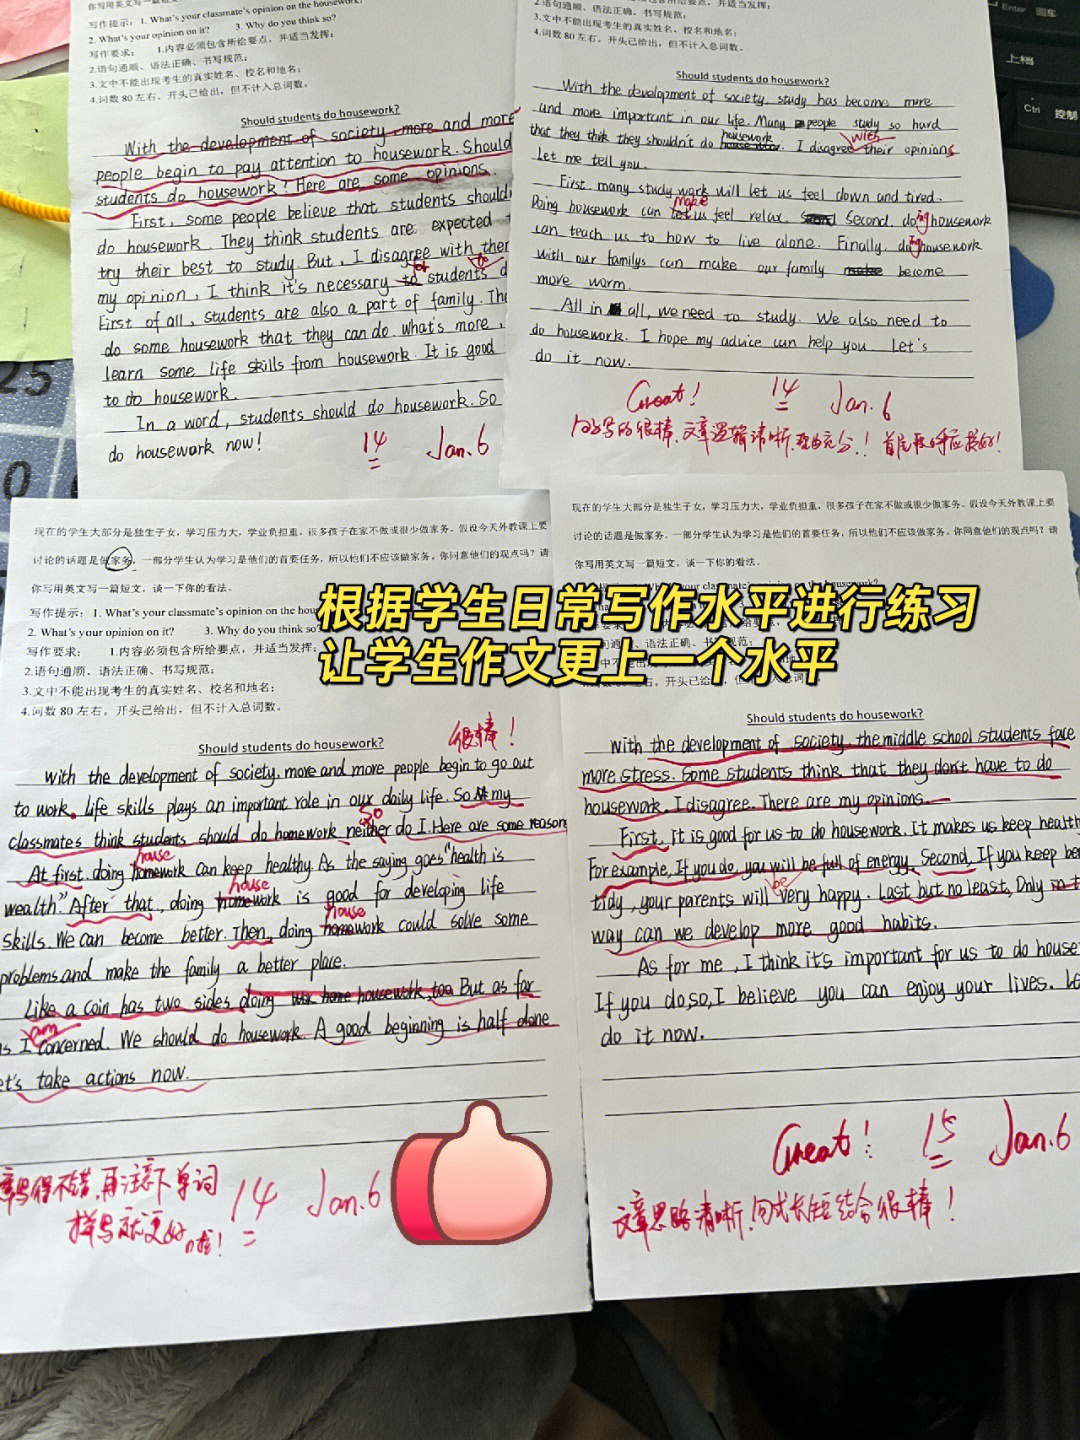 你写用英文写一篇短文
写作提示：1. What's your classmate's opinion on the housework?
2. What's your opinion on it? 3. Why do you think so?
写作要求： 1.内容必须包含所给要点，并适当发挥；
2.语句通顺、语法正确、书写规范；
3.文中不能出现考生的真实姓名、校名和地名；
4.词数 80 左右。开头已给出，但不计入总词数。
Should students do housework?
With the development of society, more and more
people begin to pay attention to housework. Should
students do housework? Here are some opinions.
First, some people believe that students should
do housework. They think students are expected
try their best to study. But, I disagree with
my opinion, I think it's necessary for students
First of all, students are also a part of family.
do some housework that they can do. what's more,
learn some life skills from housework. It is good
to do housework.
In a word, students should do housework. So
do housework now!
14 Jan.6
2.语句通顺、语法正确、书写规范；
3.文中不能出现考生的真实姓名、校名和地名；
4.词数 80 左右。开头已给出，但不计入总词数。
Should students do housework?
With the development of society, study has become more
and more important in our life. Many people study so hard
housework with
that they think they shouldn't do . I disagree their opinions
Let me tell you.
First, many study work will let us feel down and tired.
make ing
Doing housework can let us feel relax. Second, do housework
ing
can teach us to how to live alone. Finally, do housework
with our familys can make our family become
more warm.
All in all, we need to study. We also need to
do housework. I hope my advice can help you. Let's
do it now.
Great! 14 Jan.6
句子写的很棒，文章逻辑清晰，理由充分！首尾呼应挺好！
Enter 回车
上档
Ctrl 控制
25
0
根据学生日常写作水平进行练习
让学生作文更上一个水平
现在的学生大部分是独生子女，学习压力大，学业负担重，很多孩子在家不做或很少做家务。假设今天外教课上要
讨论的话题是做家务，一部分学生认为学习是他们的首要任务，所以他们不应该做家务。你同意他们的观点吗？请
你写用英文写一篇短文，谈一下你的看法。
写作提示：1. What's your classmate's opinion on the
2. What's your opinion on it? 3. Why do you think so?
写作要求： 1.内容必须包含所给要点，并适当发挥；
2.语句通顺、语法正确、书写规范；
3.文中不能出现考生的真实姓名、校名和地名；
4.词数 80 左右。开头已给出，但不计入总词数。
很棒！
Should students do housework?
With the development of society, more and more people begin to go out
to work. Life skills plays an important role in our daily life. So my
so
classmates think students should do homework neither do I. Here are some reasons
house
At first, doing homework can keep healthy. As the saying goes "health is
house
wealth". After that, doing homework is good for developing life
house
skills. We can become better. Then, doing homework could solve some
problems and make the family a better place.
Like a coin has two sides, doing housework, too. But as far
am
as I concerned. We should do housework. A good beginning is half done
Let's take actions now.
写得不错，再注意下单词
拼写就更好啦！
14 Jan.6
现在的学生大部分是独生子女，学习压力大，学业负担重，很多孩子在家不做或很少做家务。假设今天外教课上要
讨论的话题是做家务，一部分学生认为学习是他们的首要任务，所以他们不应该做家务。你同意他们的观点吗？请
你写用英文写一篇短文，谈一下你的看法。
Should students do housework?
With the development of society, the middle school students face
more stress. Some students think that they don't have to do
housework. I disagree. There are my opinions.
First, It is good for us to do housework. It makes us keep health
For example, If you do, you will be full of energy. Second, If you keep
be
tidy, your parents will very happy. Last but no least, Only
way can we develop more good habits.
As for me, I think it's important for us to do house
If you do, so, I believe you can enjoy your lives.
do it now.
Great! 15 Jan.6
文章思路清晰，句式长短结合很棒！